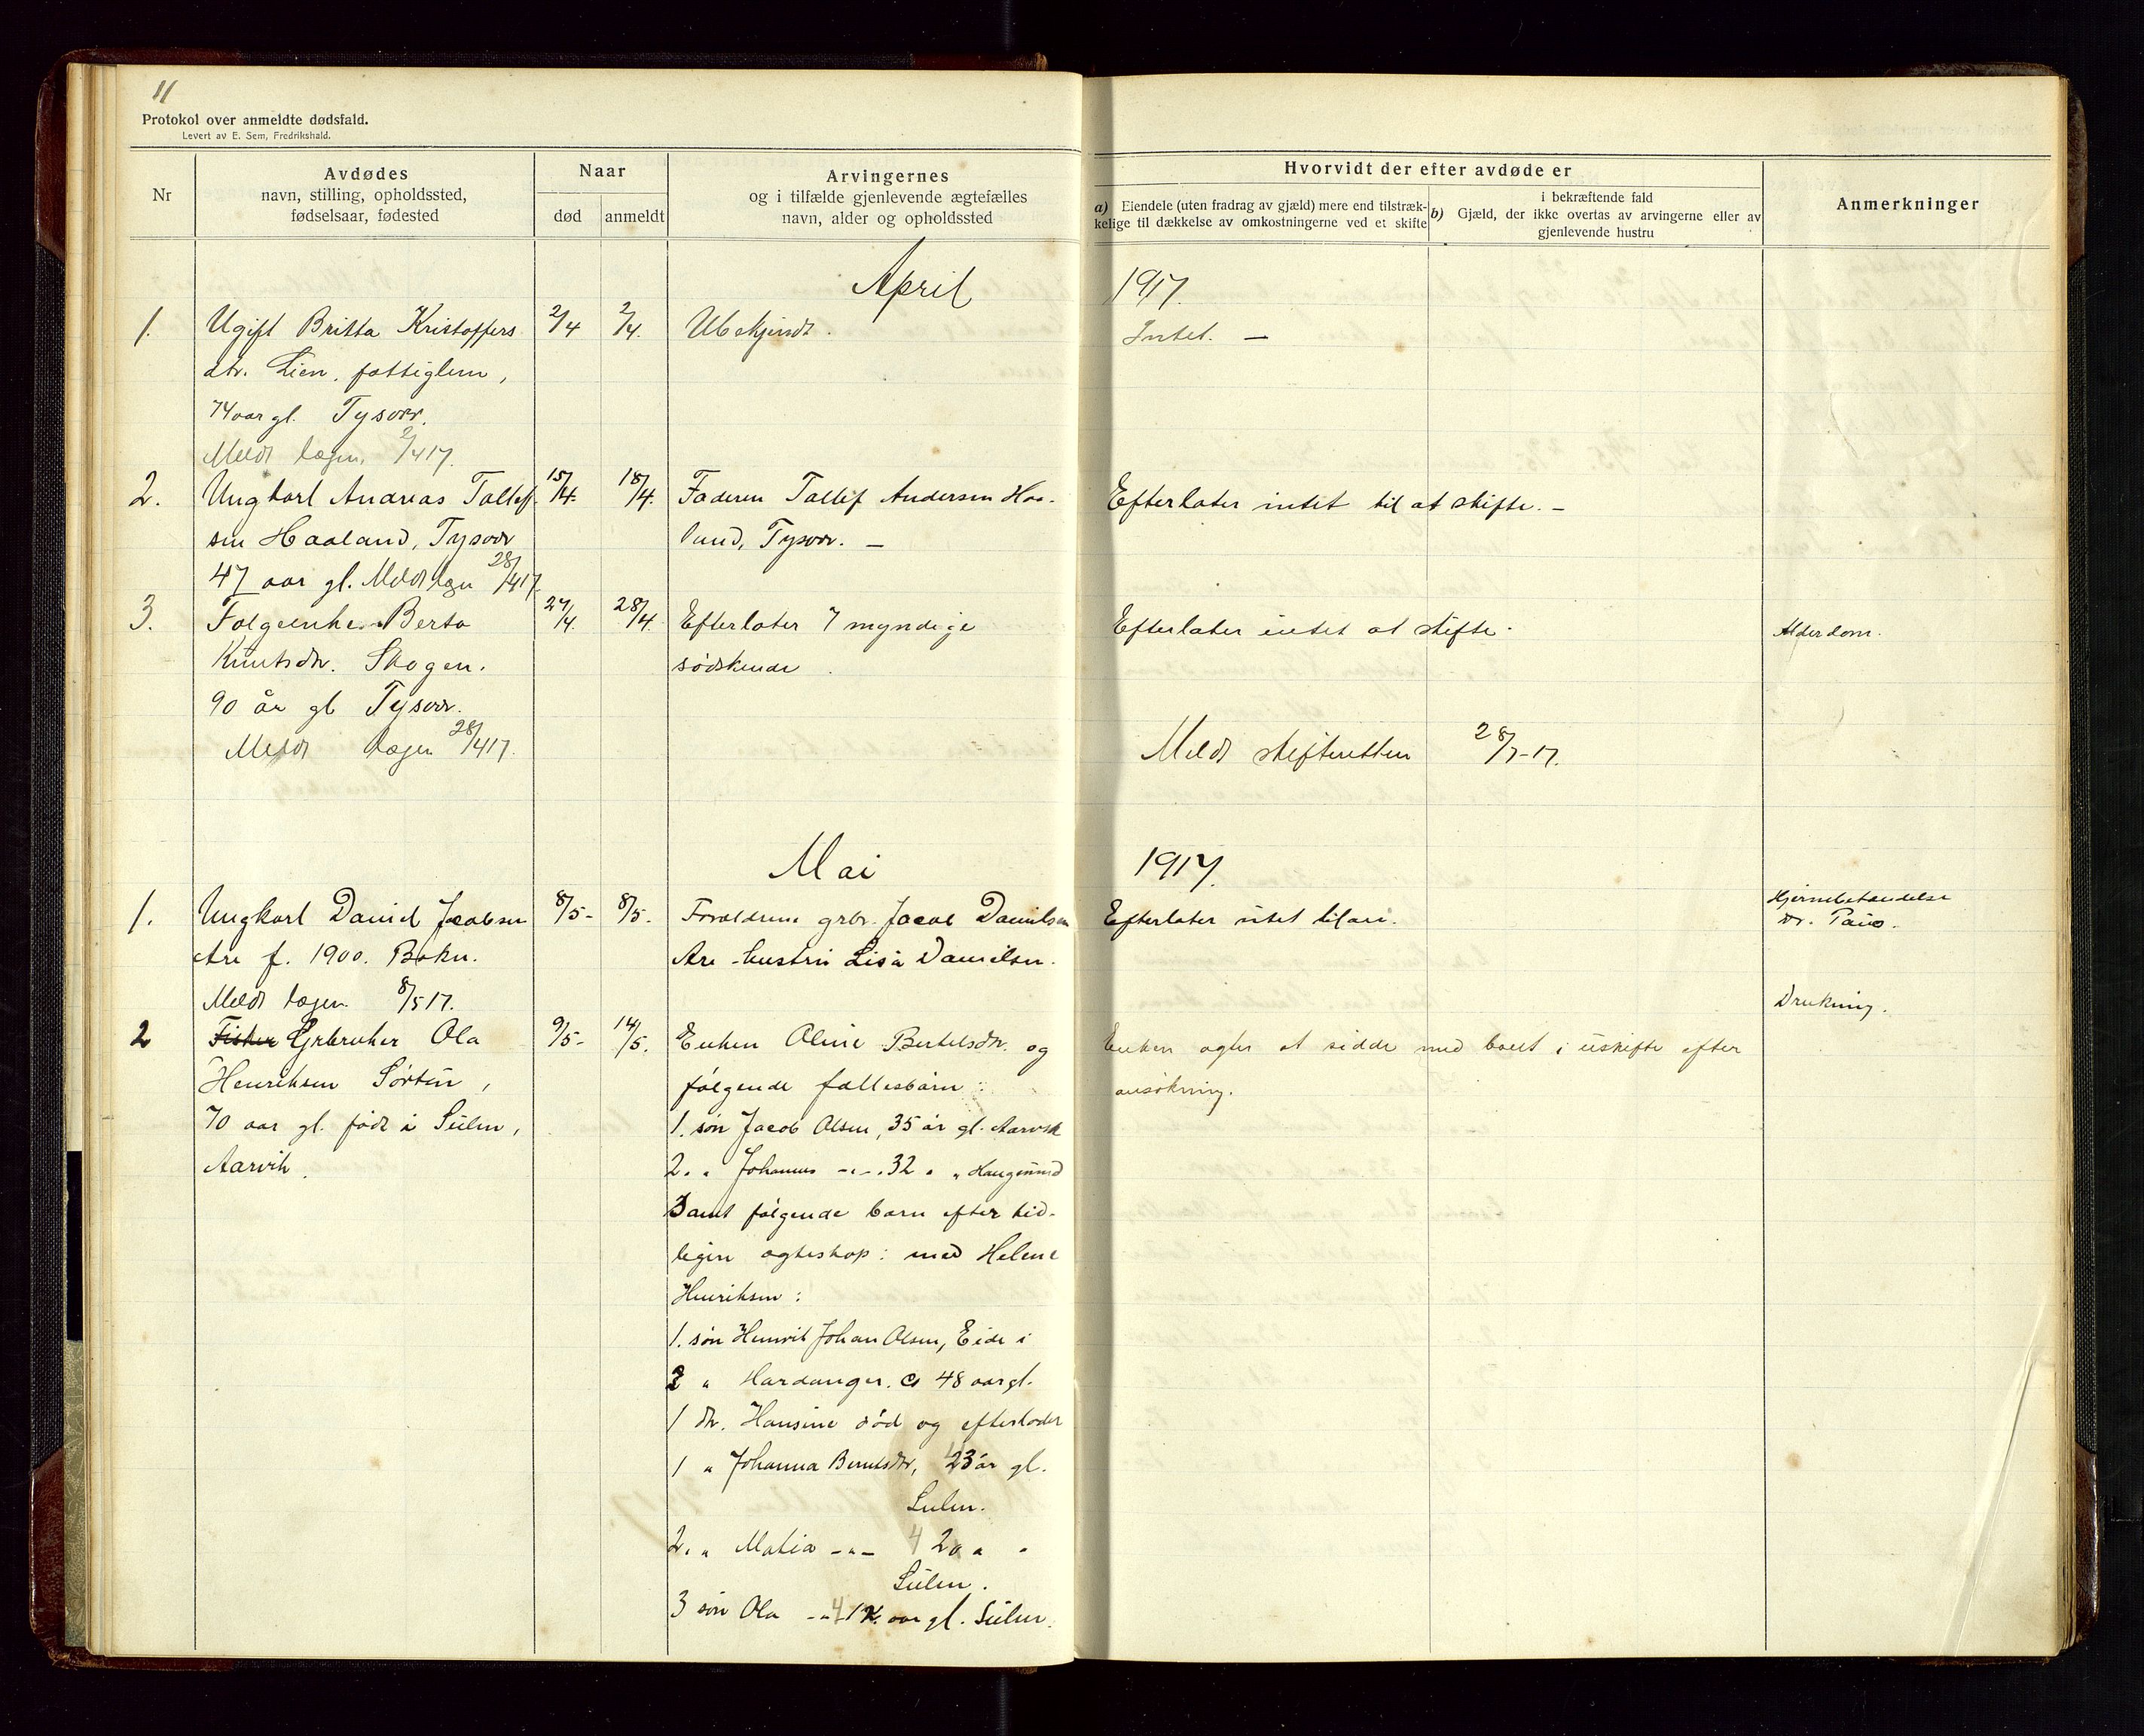 11
Protokol over anmeldte dødsfald.
Levert av E. Sem, Fredrikshald.
Nr
Avdødes
navn, stilling, opholdssted,
fødselsaar, fødested
Naar
død
anmeldt
Arvingernes
og i tilfælde gjenlevende ægtefælles
navn, alder og opholdssted
Hvorvidt der efter avdøde er
a) Eiendele (uten fradrag av gjæld) mere end tilstræk-
kelige til dækkelse av omkostningerne ved et skifte
i bekræftende fald
b) Gjæld, der ikke overtas av arvingerne eller av
gjenlevende hustru
Anmerkninger
April 1917.
1. Ugift Britta Kristoffers 2/4 2/4. Ubekjendt. Intet. —
dtr. Lien, fattiglem,
74 aar gl. Tysvær.
Meldt lægen, 2/4 17.
2. Ungkarl Andreas Tollef 15/4. 18/4. Faderen Tollef Andersen Haa- Efterlater intet til at skifte. —
sen Haaland, Tysvær land, Tysvær. —
47 aar gl. Meldt lægen 28/4 17.
3. Berta 27/4. 28/4. Efterlater 7 myndige Efterlater intet at skifte. Alderdom.
Knutsdtr. Skogen. sødskende.
90 år gl Tysvær.
Meldt lægen 28/4 17. Meldt skifteretten 28/7-17.
Mai 1917.
Dr.
1. Ungkarl Daniel Jacobsen 8/5- 8/5. Forældrene grbr. Jacob Danielsen Efterlater intet
Are f. 1900. Bokn. Are hustru Lisa Danielsen.
Meldt lægen 8/5 17. Drukning.
2 Fisker Grbruker Ola 9/5- 14/5. Enken Oline Bertelsdtr. og Enken agter at sidde med boet i uskifte efter
Henriksen Sørtun, følgende fællesbarn: ansøkning.
70 aar gl. født i Sulen, 1. søn Jacob Olsen, 35 år gl. Aarvik
Aarvik. 2. " Johannes -"- 32 " " Haugesund
Samt følgende barn efter tid-
ligere egteskap: med Helene
Henriksen:
1. søn Henrik Johan Olsen, Eide i
2 " Hardanger. ca 48 aar gl.
1 dtr. Hansine død og efterlader
1 " Johanna Berntsdtr, 23 år gl.
Sulen.
2. " Matia -"- 20 " "
Sulen.
3 søn Ola -"- aar gl. Sulen.